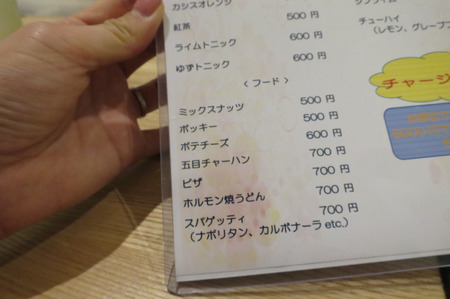 カシスオレンジ
紅茶 500 円
ライムトニック 600 円
ゆずトニック 600 円
チューハイ
（レモン、グレープフ
チャージ
＜ フード ＞
ミックスナッツ 500 円
ポッキー 500 円
ポテチーズ 600 円
五目チャーハン 700 円
ピザ 700 円
ホルモン焼うどん 700 円
スパゲッティ 700 円
（ナポリタン、カルボナーラ etc.）